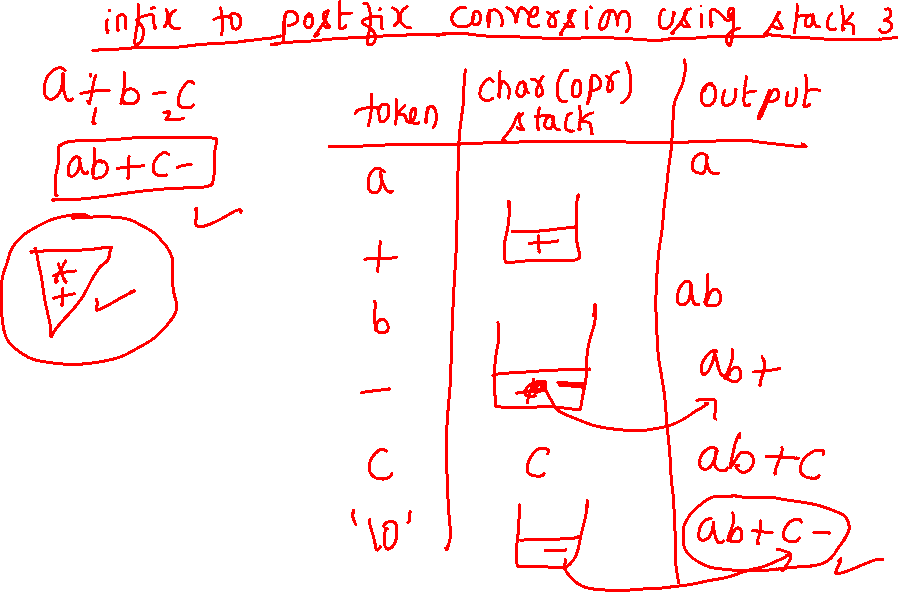 infix to postfix conversion using stack 3
a+b-c
1 2
ab+c-
*
+
token char(opr) stack output
a a
+ +
b ab
- + - ab+
c c ab+c
'\0' - ab+c-